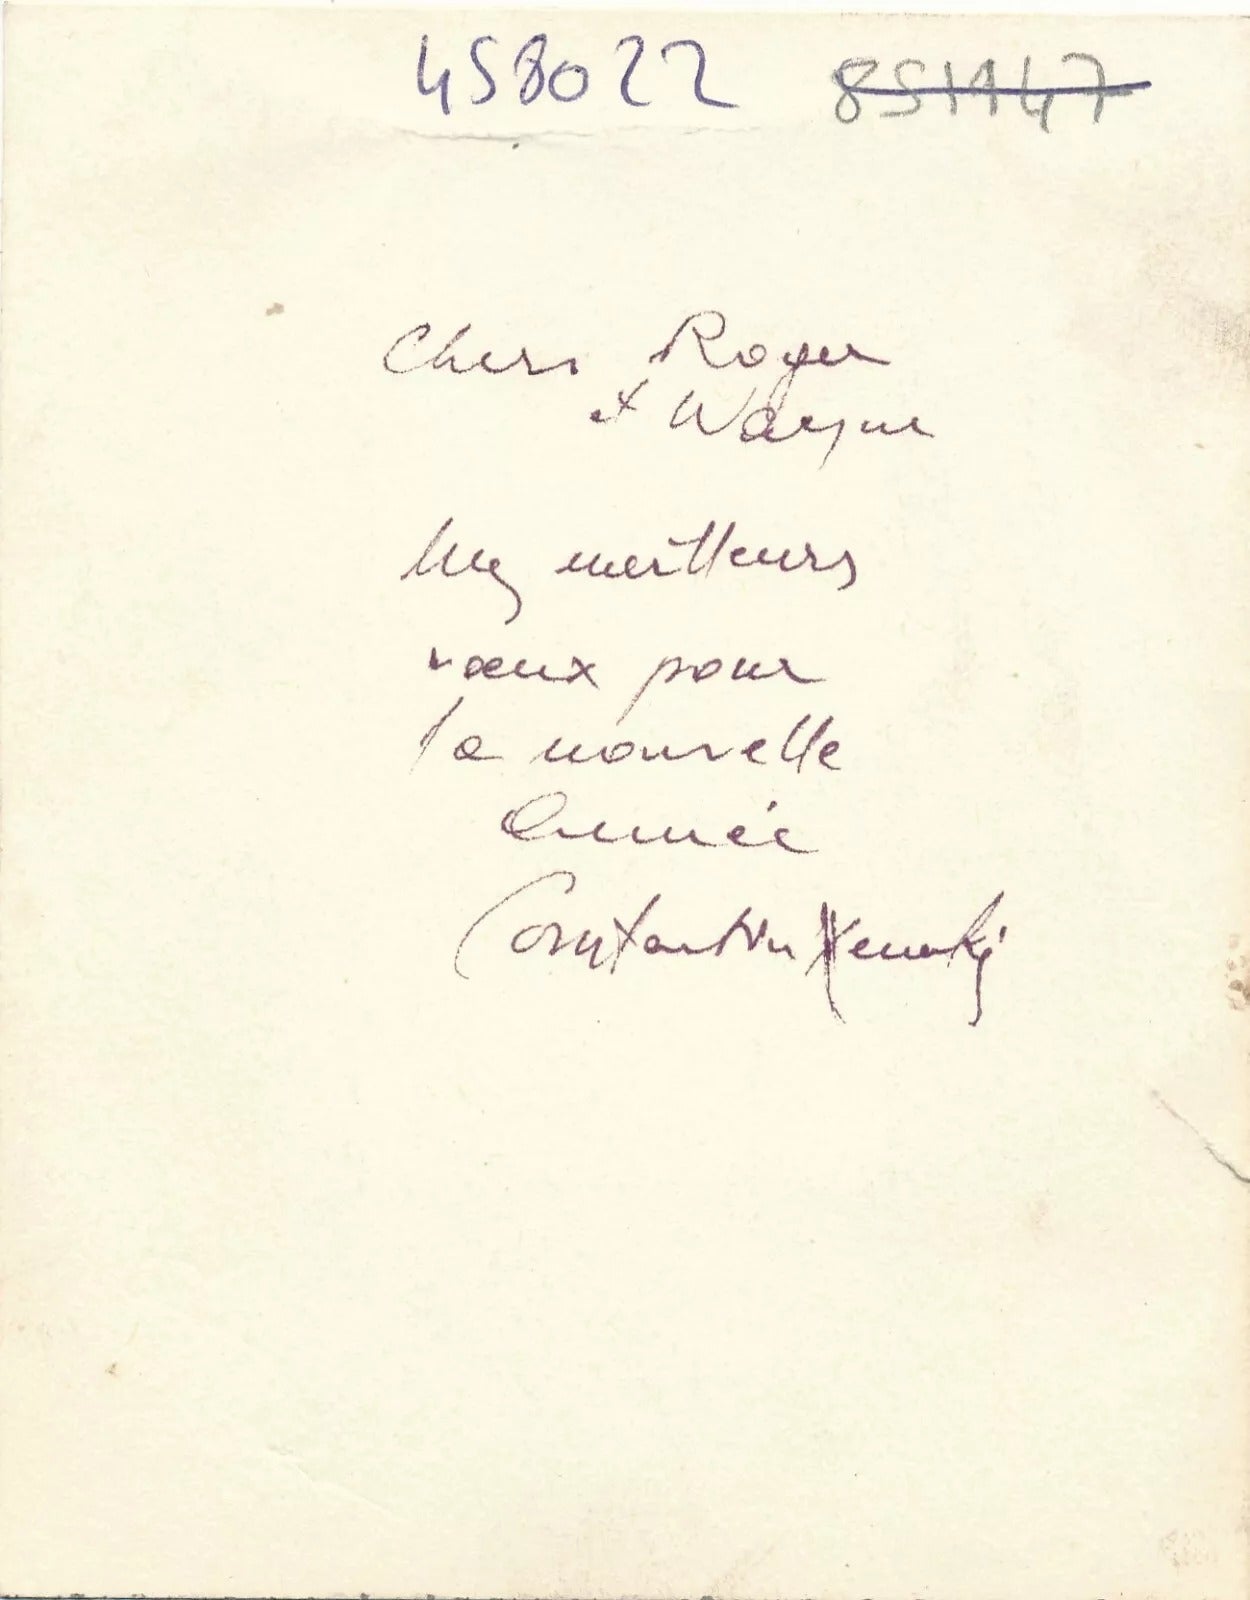 458022 851147
Chers Roger
et Wayne
Mes meilleurs
vœux pour
la nouvelle
Année
Constantin